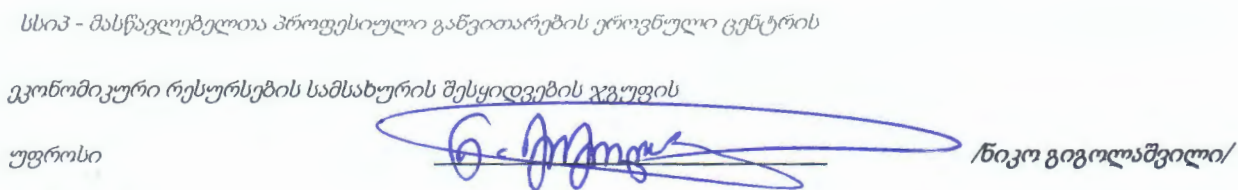 სსიპ - მასწავლებელთა პროფესიული განვითარების ეროვნული ცენტრის
ეკონომიკური რესურსების სამსახურის შესყიდვების ჯგუფის
უფროსი /ნიკო გიგოლაშვილი/